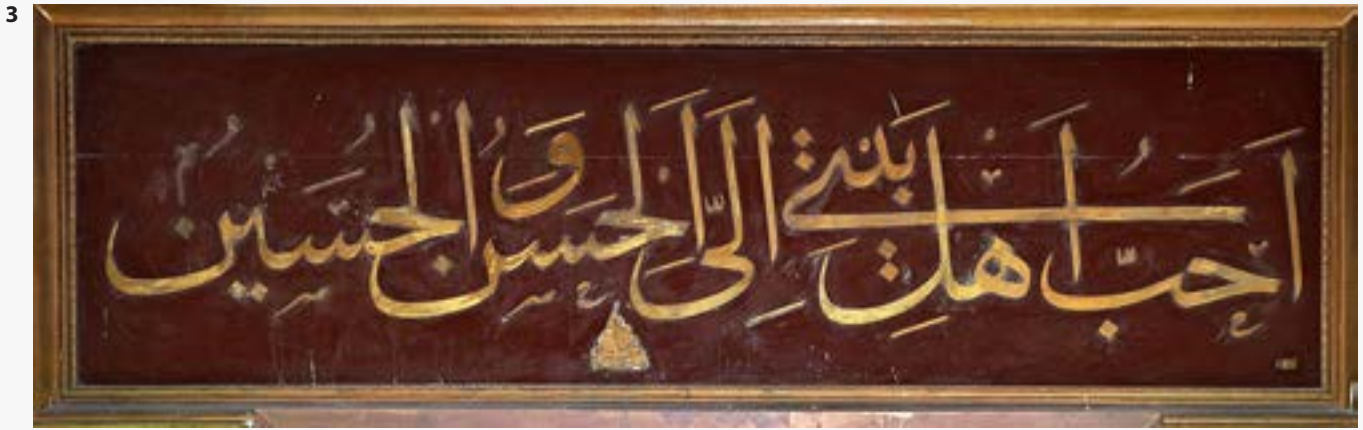 3
احب اهل بيتي الي الحسن و الحسين